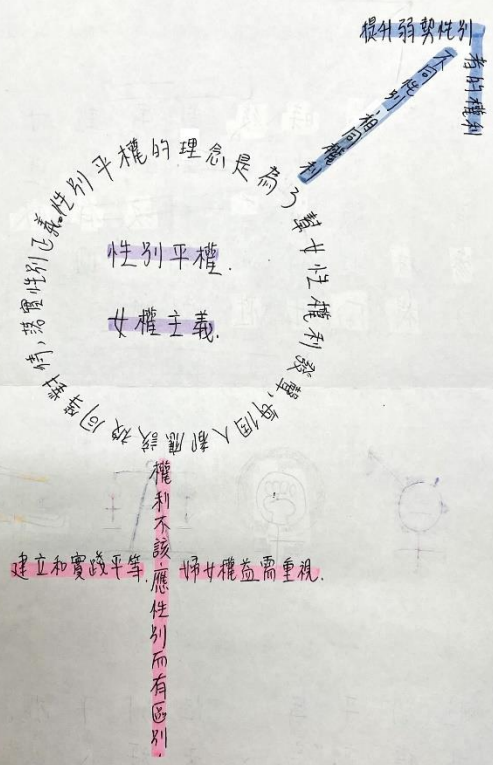 提升弱勢性別
者的權利
不同性別相同權利
性別平權的理念是為了幫女性權利發聲,每個人都應該被同等對待,落實性別正義。
性別平權.
女權主義.
權利不該應性別而有區別.
建立和實踐平等.
婦女權益需重視.